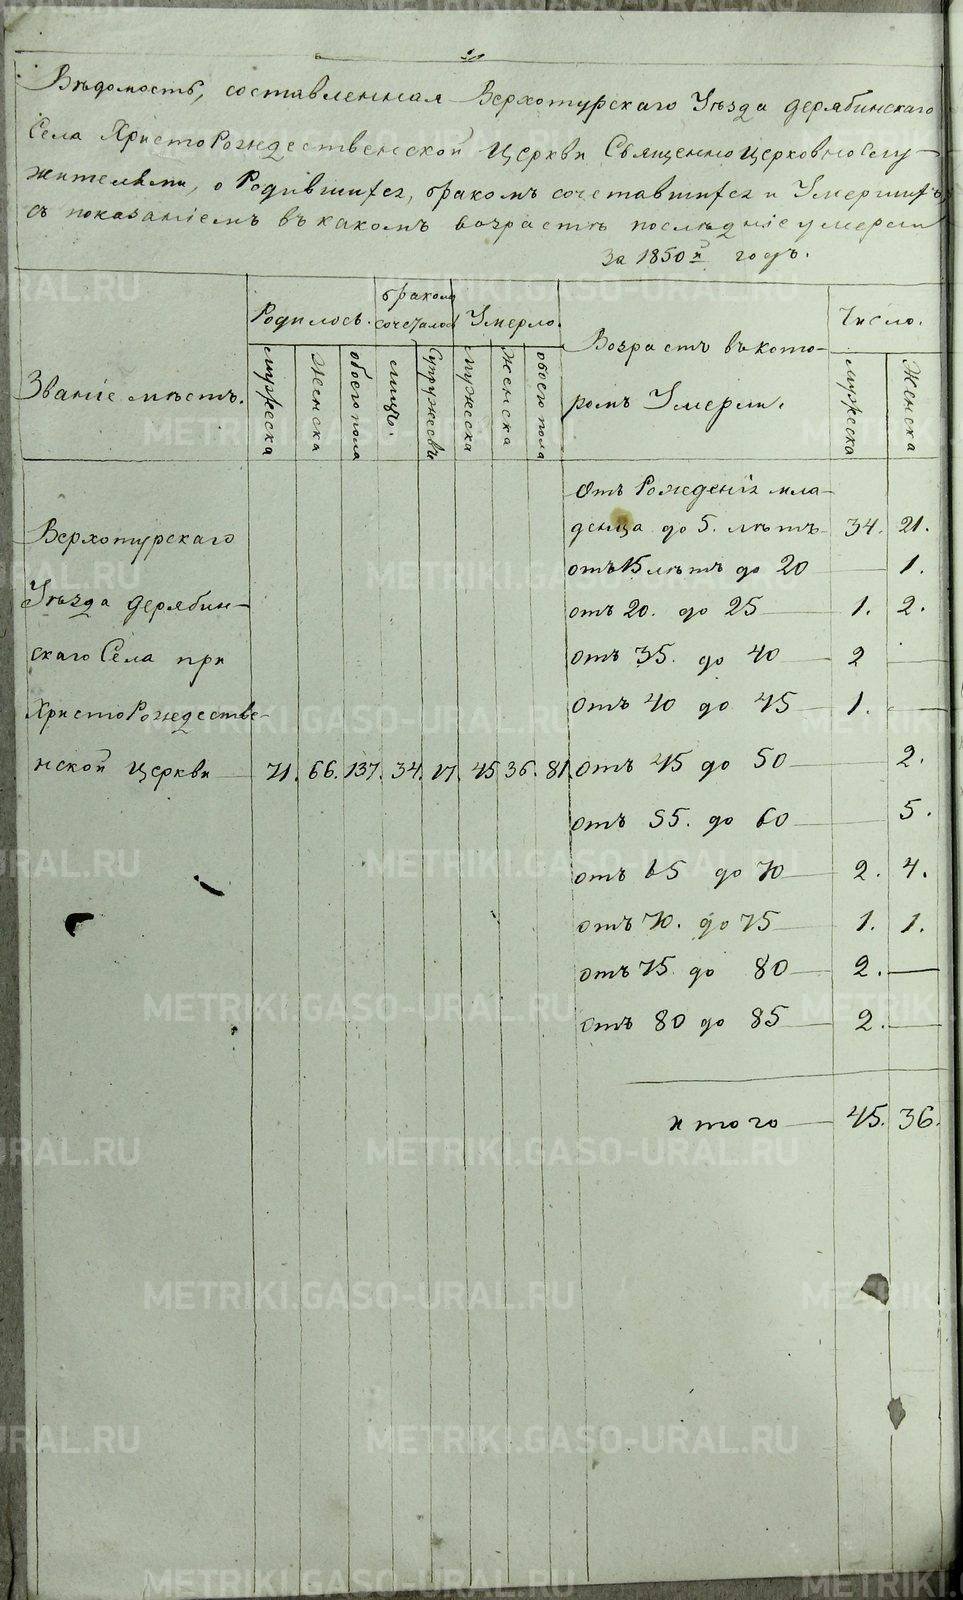 Вѣдомость, составленная Верхотурскаго Уѣзда Дерябинскаго
Села ХристоРождественской Церкви СвященноЦерковноСлу-
жителями, о Родившихся, бракомъ сочетавшихся и Умершихъ,
съ показаніемъ въ какомъ возрастѣ послѣдніе умерли
за 1850й годъ.
Званіе мѣстъ.
Родилось.
бракомъ сочеталось
Умерло.
Возрастъ въ кото-
ромъ Умерли.
Число.
мужеска
Женска
обоего пола
лицъ.
Супружествъ
мужеска
женска
обоего пола
мужеска
Женска
Верхотурскаго
Уѣзда Дерябин-
скаго Села при
ХристоРождестве-
нской Церкви 71. 66. 137. 34. 17. 45 36. 81.
Отъ Рожденія мла-
денца до 5. лѣтъ 34. 21.
отъ 15 лѣтъ до 20 — 1.
отъ 20. до 25 — 1. 2.
отъ 35. до 40 — 2 —
отъ 40 до 45 — 1. —
отъ 45 до 50 — 2.
отъ 55. до 60 — 5.
отъ 65 до 70 — 2. 4.
отъ 70. до 75 — 1. 1.
отъ 75 до 80 — 2. —
отъ 80 до 85 — 2. —
итого — 45. 36.
METRIKI.GASO-URAL.RU